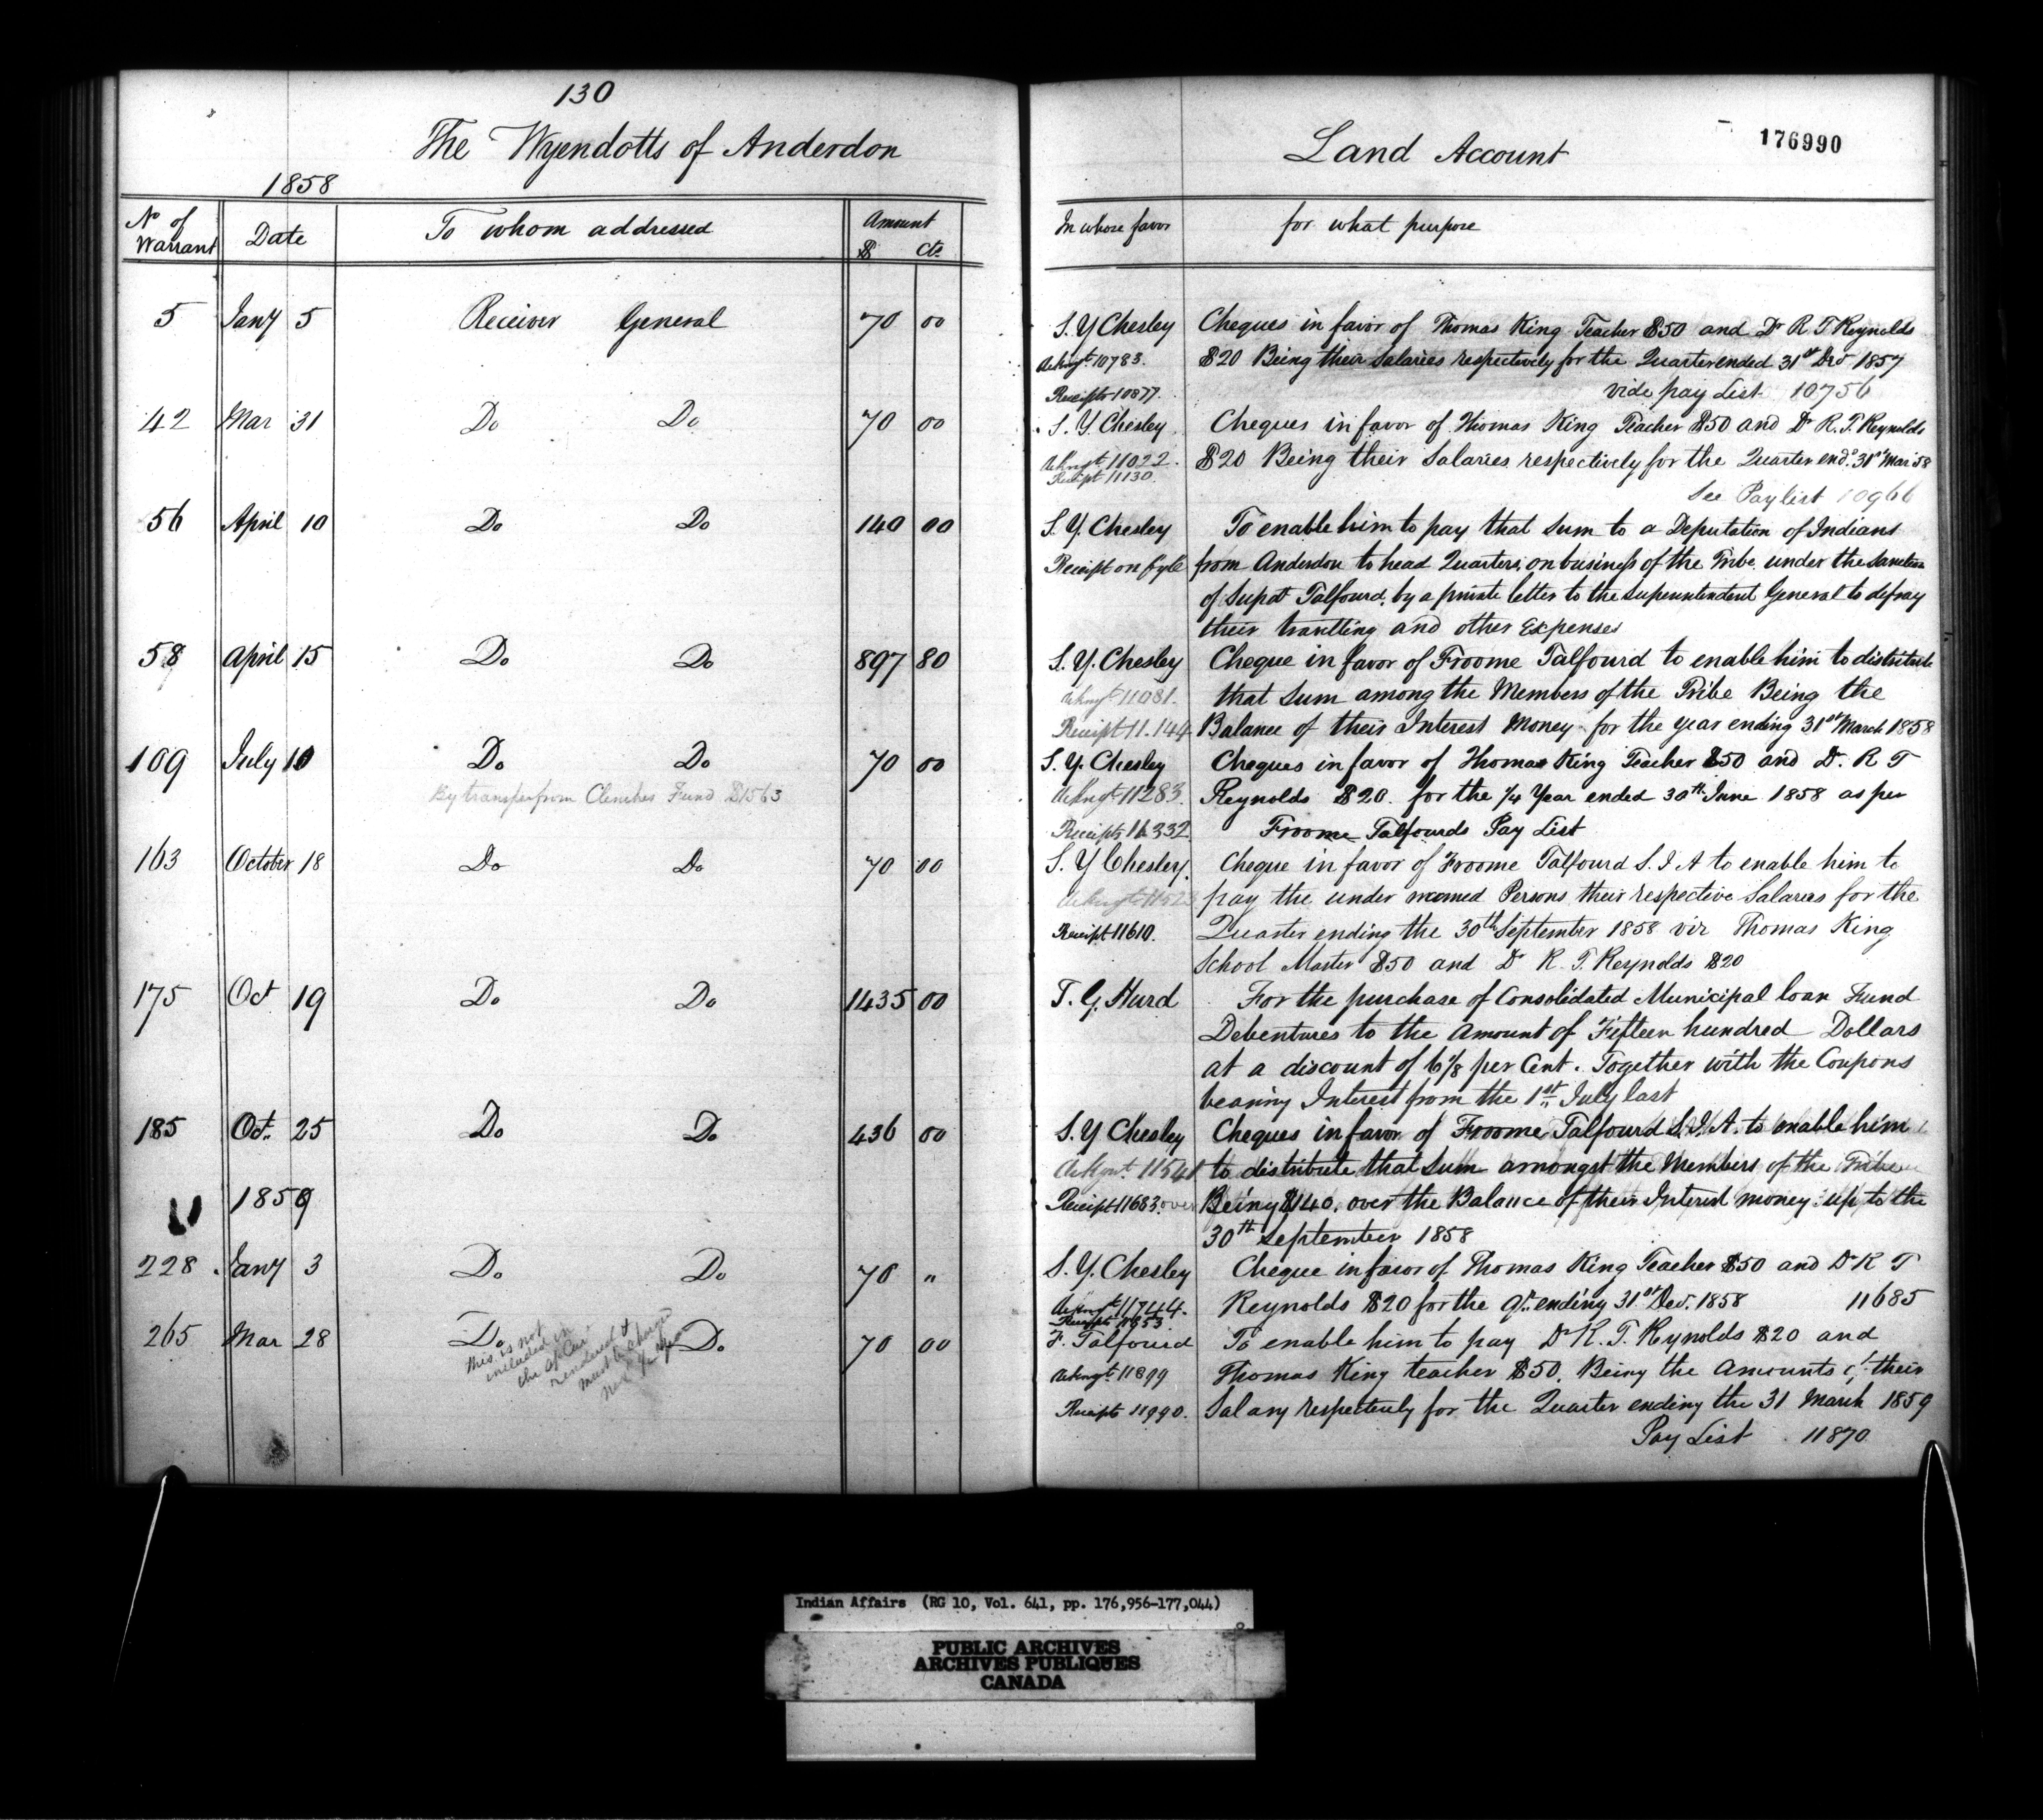 130
The Wyendotts of Anderdon
1858
No of Warrant Date To whom addressed Amount $ Cts
5 Jany 5 Receiver General 70 00
42 Mar 31 Do Do 70 00
56 April 10 Do Do 140 00
58 April 15 Do Do 897 80
109 July 10 Do Do 70 00
By transfer from Clenches Fund $1563
163 October 18 Do Do 70 00
175 Oct 19 Do Do 1435 00
185 Oct. 25 Do Do 436 00
1859
228 Jany 3 Do Do 70 "
265 Mar 28 Do Do 70 00
This is not
included in
the
rendered &
must be
Land Account
176990
In whose favor for what purpose
S. Y Chesley Cheques in favor of Thomas King Teacher $50 and Dr R T Reynolds
Ackngt 10783. $20 Being their Salaries respectively for the Quarter ended 31st Dec 1857
Receipts 10877. vide pay List 10756
S. Y. Chesley Cheques in favor of Thomas King Teacher $50 and Dr R. T. Reynolds
Ackngt 11022. $20 Being their Salaries respectively for the Quarter end.d 31st Mar 58
Receipt 11130.
See Paylist 10966
S. Y. Chesley To enable him to pay that sum to a Deputation of Indians
Receipt on fyle from Anderdon to head Quarters, on business of the Tribe, under the sanction
of Supdt Talfourd, by a private letter to the Superintendent General to defray
their travelling and other Expenses
S. Y. Chesley Cheque in favor of Froome Talfourd to enable him to distribute
Ackngt 11081. that Sum among the Members of the Tribe Being the
Receipt 11.144 Balance of their Interest Money for the year ending 31st March 1858
S. Y. Chesley Cheques in favor of Thomas King Teacher $50 and Dr. R T
Ackngt 11283. Reynolds $20. for the 1/4 Year ended 30th June 1858 as per
Receipts 11332 Froome Talfourds Pay List
S. Y Chesley. Cheque in favor of Froome Talfourd S. I. A to enable him to
pay the under named Persons their respective Salaries for the
Receipt 11610. Quarter ending the 30th September 1858 viz Thomas King
School Master $50 and Dr R. T. Reynolds $20
T. G. Hurd For the purchase of Consolidated Municipal loan Fund
Debentures to the amount of Fifteen hundred Dollars
at a discount of 6 1/8 per Cent. Together with the Coupons
bearing Interest from the 1st July last
S. Y Chesley Cheques in favor of Froome Talfourd S. I. A. to enable him
Ackgnt. 11541 to distribute that Sum amongst the Members of the Tribe
Receipt 11683. over Being $140. over the Balance of their Interest money up to the
30th September 1858
S. Y. Chesley Cheque in favor of Thomas King Teacher $50 and Dr R T
Ackngt 11744. Reynolds $20 for the Qr. ending 31st Dec. 1858 11685
F. Talfourd To enable him to pay Dr R. T. Reynolds $20 and
Ackngt. 11899 Thomas King teacher $50. Being the amounts of their
Receipts 11990. Salary respectively for the Quarter ending the 31 March 1859
Pay List 11870
Indian Affairs (RG 10, Vol. 641, pp. 176,956-177,044)
PUBLIC ARCHIVES
ARCHIVES PUBLIQUES
CANADA